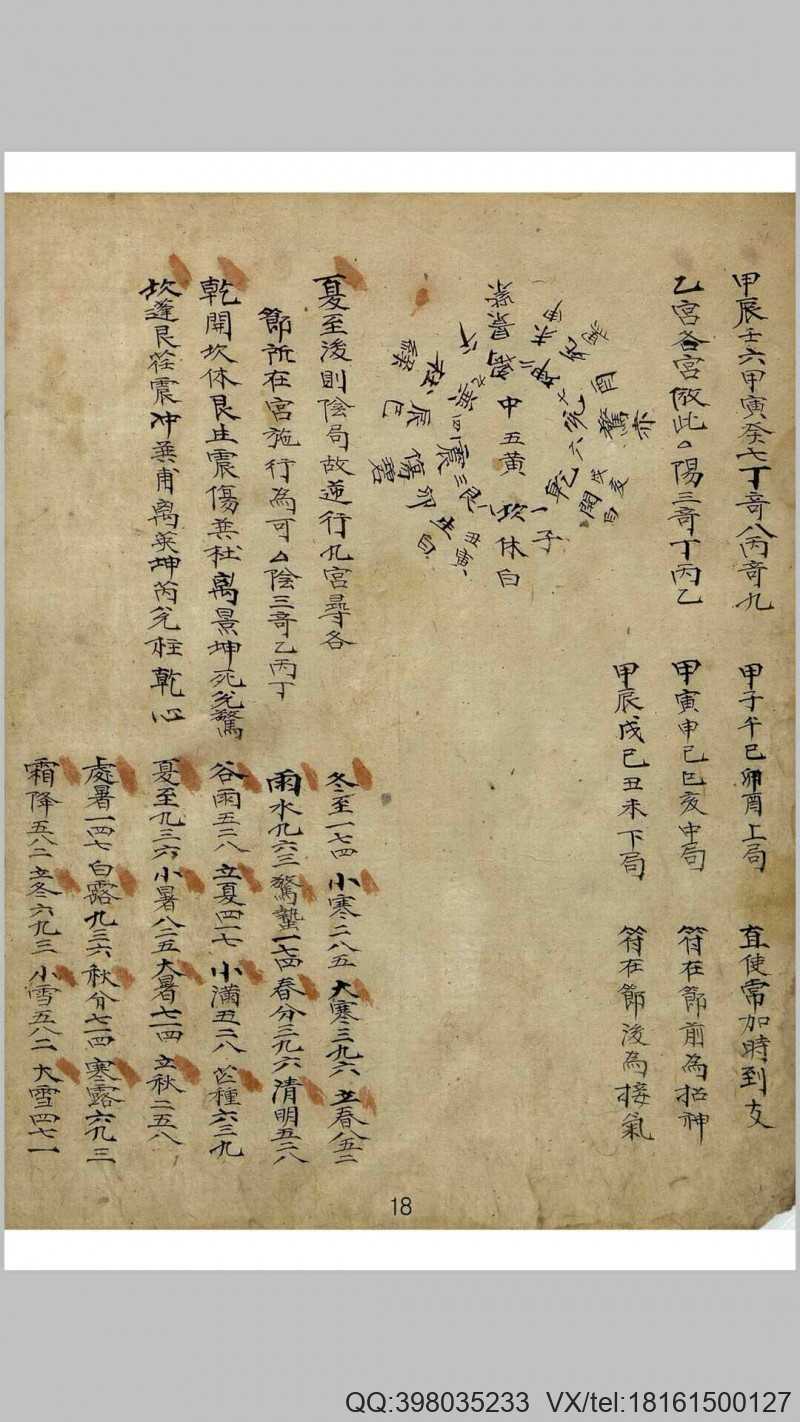 甲辰壬六甲寅癸七丁奇八丙奇九
乙宮各宮倣此△陽三奇丁丙乙
甲子午巳卯酉上局
甲寅申己巳亥中局
甲辰戌己丑未下局
直使常加時到支
符在節前為招神
符在節後為接氣
中五黃
坎休白
子
一
乾六
開白
戌亥
兌七
驚赤
酉
坤二
死
未申
離九
景紫
巽四
杜
辰巳
震三
傷碧
卯
艮八
生白
丑寅
夏至後則陰局故逆行九宮尋各
節所在宮施行為可△陰三奇乙丙丁
乾開坎休艮生震傷巽杜离景坤死兌驚
坎蓬艮任震冲巽甫离英坤芮兌柱乾心
冬至一七四 小寒二八五 大寒三九六 立春八五二
雨水九六三 驚蟄一七四 春分三九六 清明五二八
谷雨五二八 立夏四一七 小滿五二八 芒種六三九
夏至九三六 小暑八二五 大暑七一四 立秋二五八
處暑一四七 白露九三六 秋分七一四 寒露六九三
霜降五八二 立冬六九三 小雪五八二 大雪四七一
18
QQ:398035233 VX/tel:18161500127